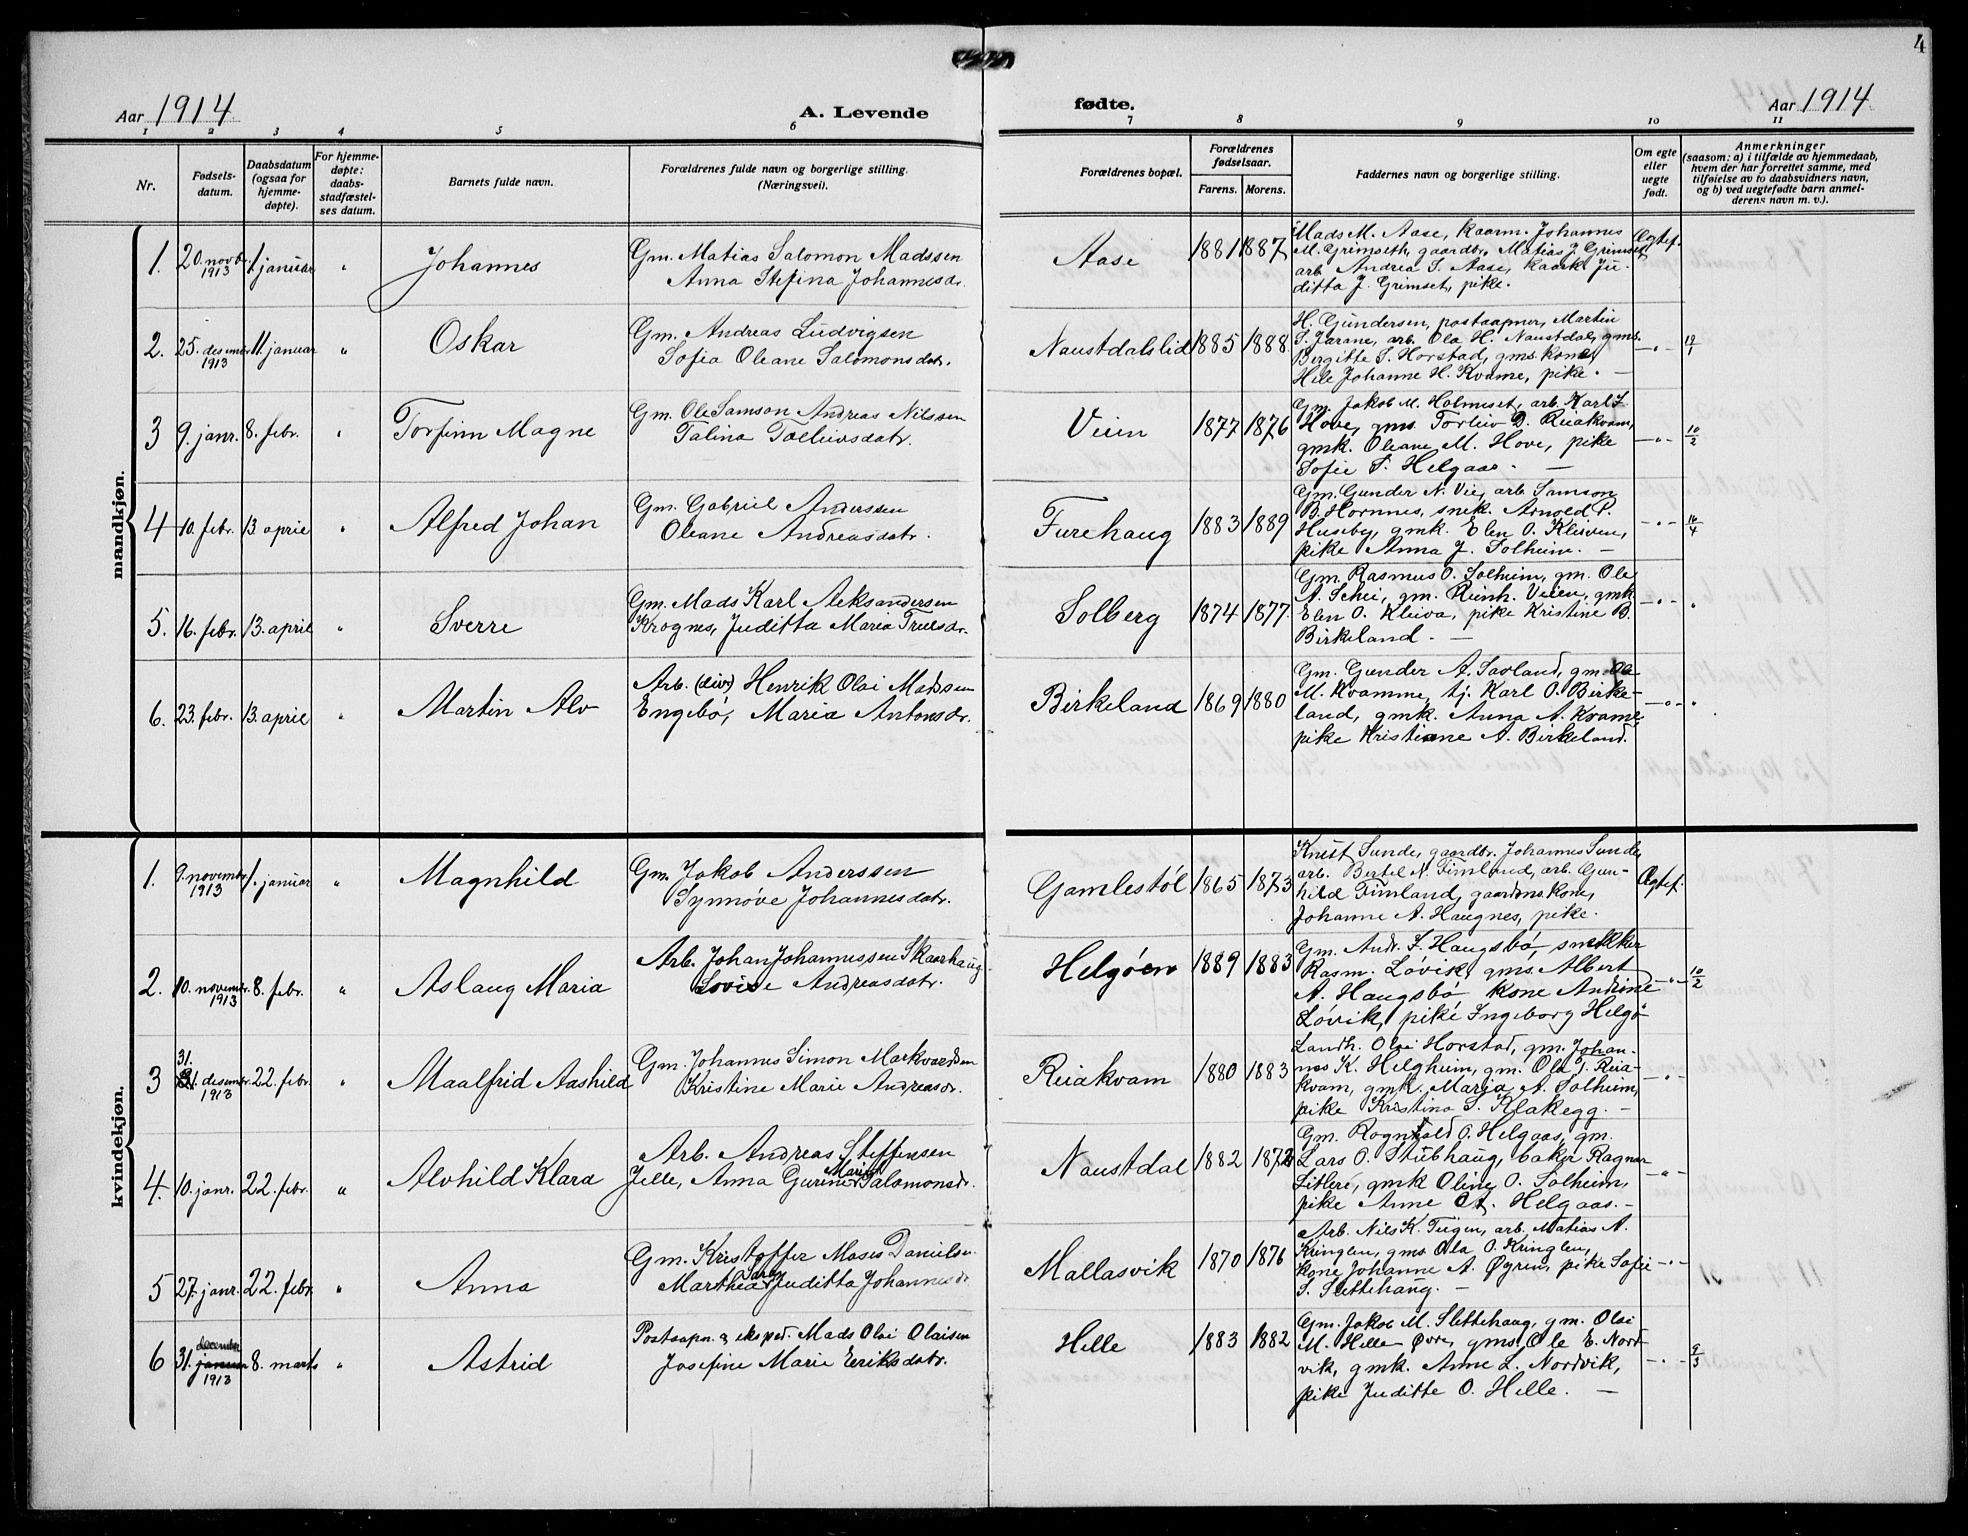 4
Aar 1914
A. Levende
fødte.
Aar 1914
1 2 3 4 5 6 7 8 9 10 11
Nr.
Fødsels-
datum.
Daabsdatum
(ogsaa for
hjemme-
døpte).
For hjemme-
døpte:
daabs-
stadfæstel-
ses datum.
Barnets fulde navn.
Forældrenes fulde navn og borgerlige stilling.
(Næringsvei).
Forældrenes bopæl.
Forældrenes
fødselsaar.
Farens. Morens.
Faddernes navn og borgerlige stilling.
Om egte
eller
uegte
født.
Anmerkninger
(saasom: a) i tilfælde av hjemmedaab,
hvem der har forrettet samme, med
tilføielse av to daabsvidners navn,
og b) ved uegtefødte barn anmel-
derens navn m. v.).
mandkjøn.
1. 20. novb. 1913 1. januar " Johannes
Gm. Matias Salomon Madssen
Anna Stefina Johannesdr.
Aase 1881 1887
Mads M. Aase, kaarm. Johannes
M. Grimseth, gaardbr. Matias J. Grimset,
arb. Andrea S. Aase, kaark. Ju-
ditta J. Grimset, pike.
Ægtef.
2. 25. desembr 1913 11. januar " Oskar
Gm. Andreas Ludvigsen
Sofia Oleane Salomonsdatr.
Naustdalslid 1885 1888
H. Gundersen, postaapner, Martin
S. Jarane, arb. Ola H. Naustdal, gms.
Bergitte S. Horstad, gms. kone,
Hele Johanne H. Kvame, pike. —
—"— 19/1
3 9. janr. 8. febr. " Torfinn Magne
Gm. Ole Samson Andreas Nilssen
Talina Tolleivsdatr.
Vein 1877 1876
Gm. Jakob M. Holmeset, arb. Karl S.
Hove, gms. Torleiv D. Reiakvam,
gmk. Oleane M. Hove, pike
Sofie S. Helgaas. —
—"— 10/2
4 10. febr. 13. april " Alfred Johan
Gm. Gabriel Anderssen
Oleane Andreasdatr.
Furehaug 1883 1889
Gm. Gunder N. Vie, arb. Samson
B. Hornnes, snek. Arnold P.
Huseby, gmk. Elen O. Kleiven,
pike Anna J. Solheim. —
—"— 16/4
5. 16. febr. 13. april " Sverre
Gm. Mads Karl Aleksandersen
Krognes, Juditta Maria Truelsdr.
Solberg 1874 1877
Gm. Rasmus O. Solheim, gm. Ole
A. Schei, gm. Reinh. Veien, gmk
Elen O. Kleiva, pike Kristine B.
Birkeland. —
—"— "
6. 23. febr. 13. april " Martin Alv
Arb. (div) Henrik Olai Madssen
Engebø, Maria Antonsdr.
Birkeland 1869 1880
Gm. Gunder A. Savland, gm. Ole
M. Kvamme, tj. Karl O. Birke-
land, gmk. Anna A. Kvame,
pike Kristiane A. Birkeland.
—"— "
kvindekjøn.
1. 9. novembr 1913 1. januar " Magnhild
Gm. Jakob Anderssen
Synnøve Johannesdatr.
Gamlestøl 1865 1873
Knut Sunde, gaardbr. Johannes Sunde,
arb. Bertel N. Timland, arb. Gun-
hild Timland, gaardms. kone,
Johanne A. Haugnes, pike.
Ægtef.
2. 10. novembr. 1913 8. febr. " Aslaug Maria
Arb. Johan Johannessen Skaarhaug
Lovise Andreasdatr.
Helgøen 1889 1883
Gm. Andr. S. Haugsbø, snekker
Rasm. Løvik, gms. Albert
A. Haugsbø kone Andrine
Løvik, pike Ingeborg Helgø
—"— 10/2
3 31. desembr. 1913 22. febr. " Maalfrid Aashild
Gm. Johannes Simon Markvardsen
Kristine Marie Andreasdr.
Reiakvam 1880 1883
Landh. Olai Horstad, gm. Johan-
nes K. Helgheim, gm. Ola T. Reia-
kvam, gmk. Maria A. Solheim,
pike Kristina S. Klakegg. —
—"—
4. 10. janr. 22. febr. " Alvhild Klara
Arb. Andreas Steffensen
Jelle, Anna Gurine Marie Salomonsdr.
Naustdal 1882 1872
Gm. Rognvald O. Helgaas, gm.
Lars O. Stubhaug, baker Ragnar
Sitlere, gmk Oline O. Solheim,
pike Anne A. Helgaas. —
—"—
5 27. janr. 22. febr. " Anna
Gm. Kristoffer Moses Danielsn.
Marthea Sara Juditta Johannesdr
Mallasvik 1870 1876
Arb. Nils K. Tugen, arb. Matias A.
Kringlen, gms Ola O. Kringlen,
kone Johanne A. Øyrin, pike Sofie
S. Slettehaug. —
—"—
6 31. december januar 1913 8. marts " Astrid
Postaapn. & eksped. Mads Olai Olaisen
Josefine Marie Eeriksdatr.
Helle 1883 1882
Gm. Jakob M. Slettehaug, gm. Olai
M. Helle Øvre, gms. Ole E. Nord-
vik, gmk. Anne L. Nordvik,
pike Juditte O. Helle. —
—"— 9/3